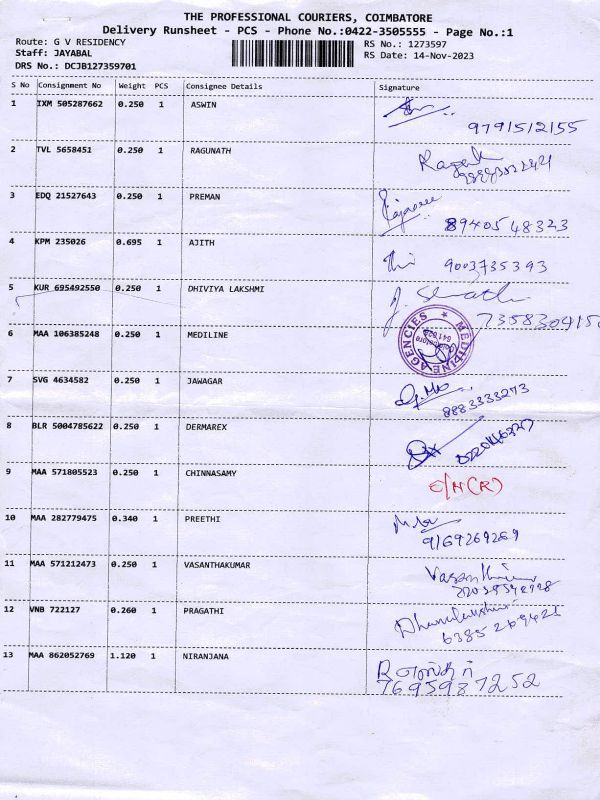 THE PROFESSIONAL COURIERS, COIMBATORE
Delivery Runsheet - PCS - Phone No.:0422-3505555 - Page No.:1
Route: G V RESIDENCY
Staff: JAYABAL
DRS No.: DCJB127359701
RS No.: 1273597
RS Date: 14-Nov-2023
S No Consignment No Weight PCS Consignee Details Signature
1 IXM 505287662 0.250 1 ASWIN
9791512155
2 TVL 5658451 0.250 1 RAGUNATH
3 EDQ 21527643 0.250 1 PREMAN
8940548323
4 KPM 235026 0.695 1 AJITH
9003735393
5 KUR 695492550 0.250 1 DHIVIYA LAKSHMI
6 MAA 106385248 0.250 1 MEDILINE
MEDILINE AGENCIES
7 SVG 4634582 0.250 1 JAWAGAR
8883333273
8 BLR 5004785622 0.250 1 DERMAREX
9 MAA 571805523 0.250 1 CHINNASAMY
10 MAA 282779475 0.340 1 PREETHI
9169269269
11 MAA 571212473 0.250 1 VASANTHAKUMAR
12 VNB 722127 0.260 1 PRAGATHI
6385269423
13 MAA 862052769 1.120 1 NIRANJANA
7695987252